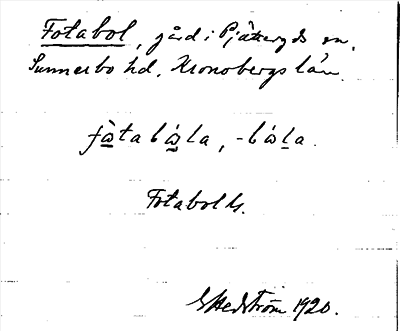 Fotabol, gård i Pjätteryds sn,
Sunnerbo hd, Kronobergs län.
fὼtabώla, -bώla.
Fotabol ls.
G Hedström 1920.